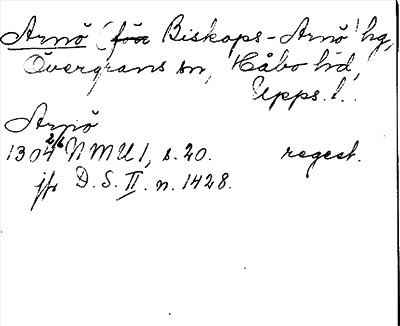 Arnö (föa Biskops-Arnö) hg,
Övergrans sn, Håbo hd,
Upps. l.
Arnö
1304 2/6 NMU 1, s. 20. regest.
jfr D.S. II. n. 1428.